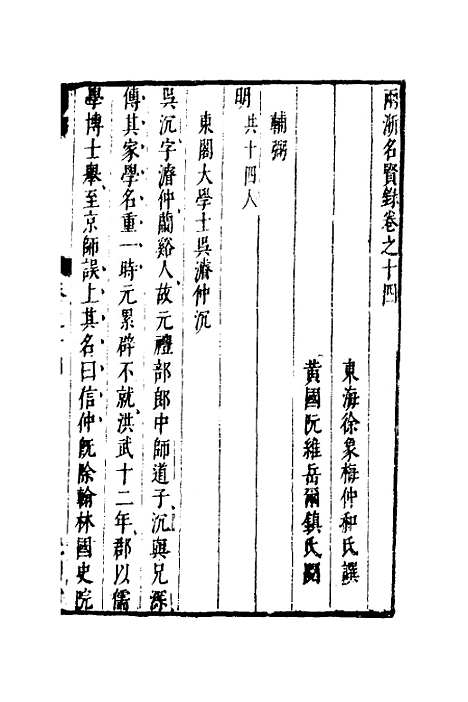 兩浙名賢錄卷之十四
東海徐象梅仲和氏譔
黃國阮維岳爾鎮氏閱
輔弼
明共十四人
東閣大學士吳濬仲沉
吳沉字濬仲蘭谿人故元禮部郎中師道子沉與兄深
傳其家學名重一時元累辟不就洪武十二年郡以儒
學博士舉至京師誤上其名曰信仲旣除翰林國史院